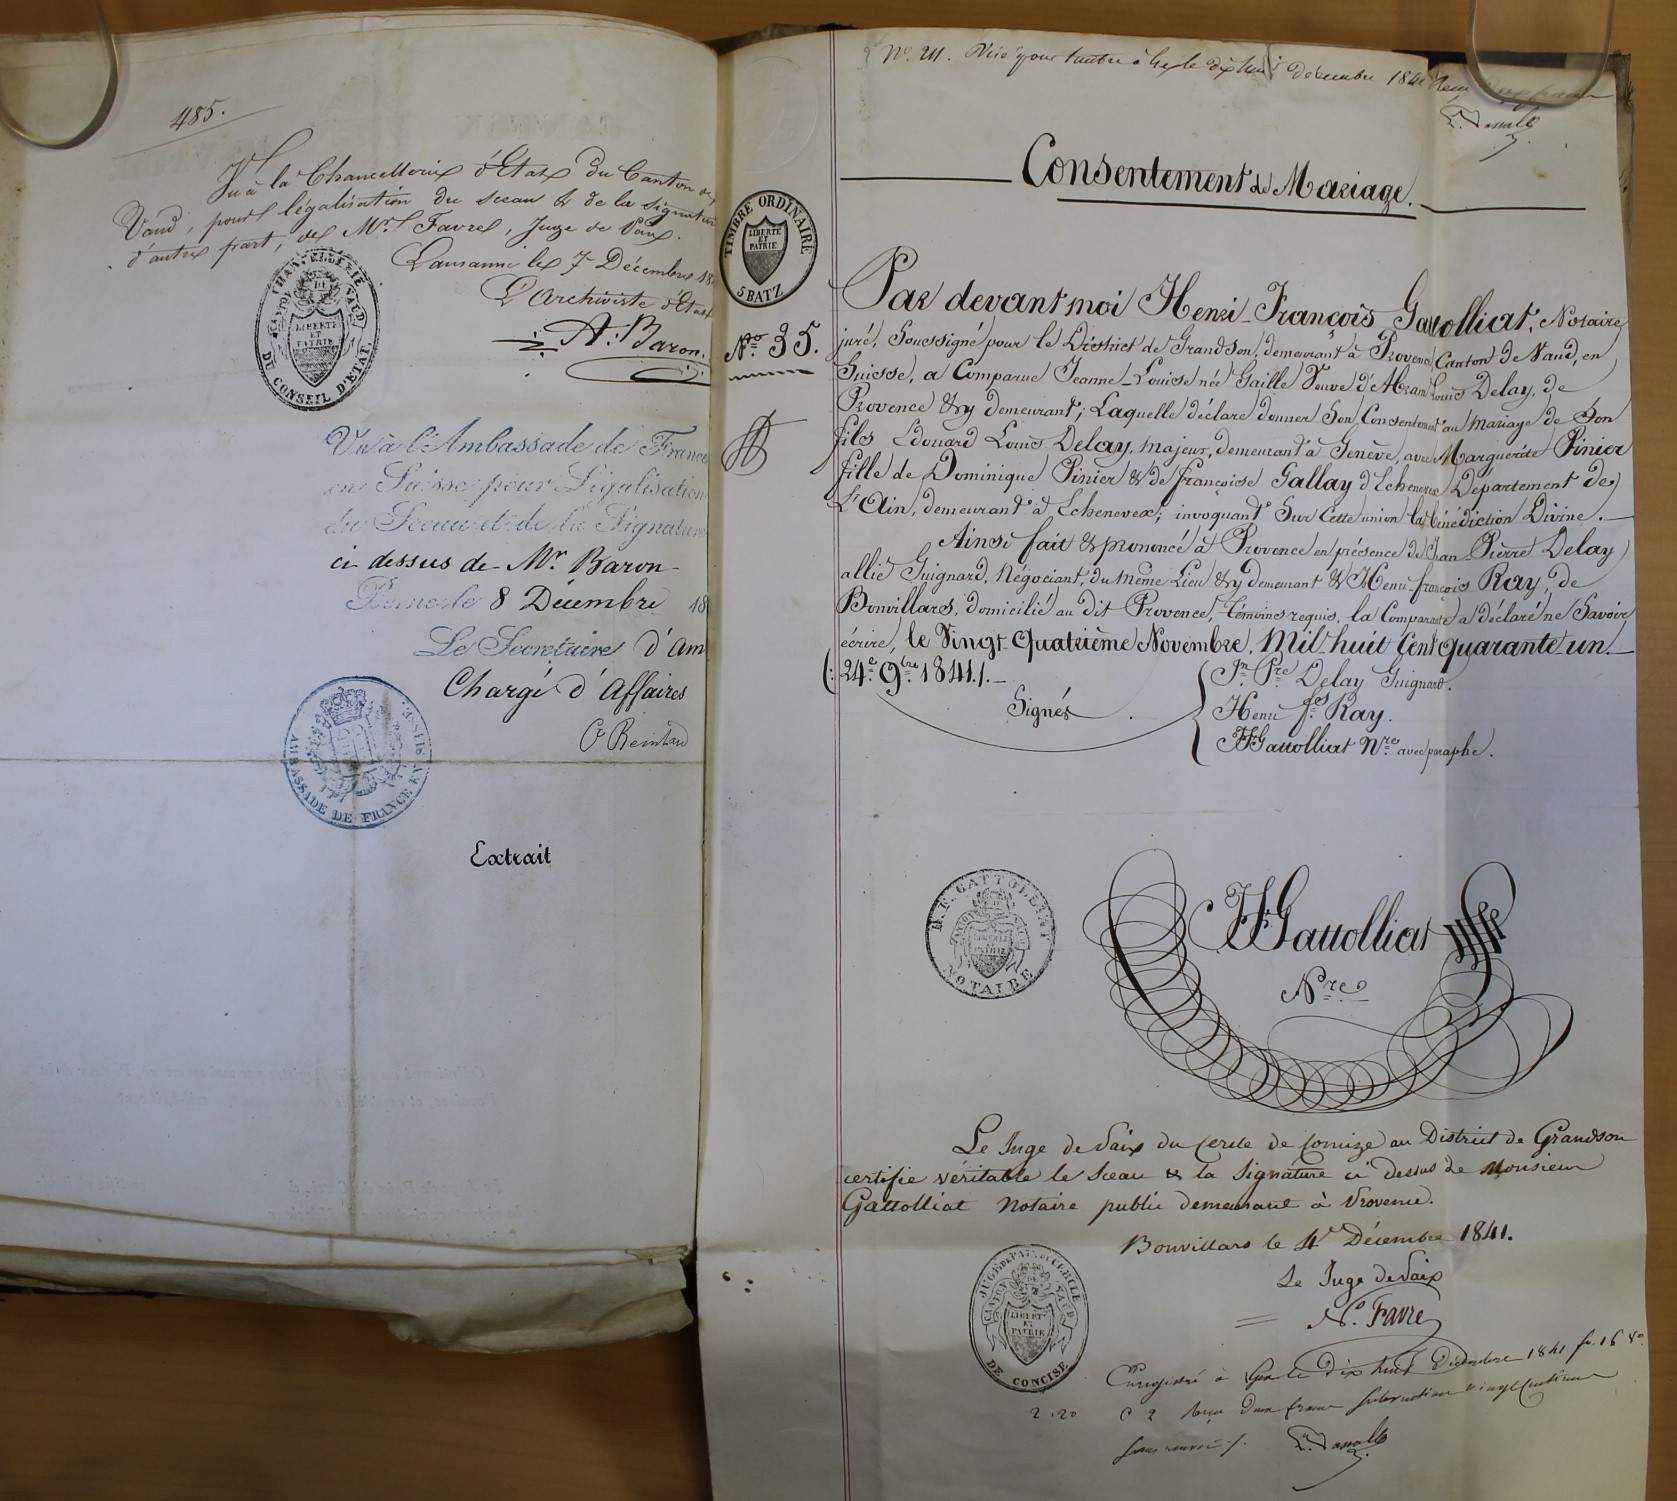 485.
Vu à la Chancellerie d'Etat du Canton de
Vaud, pour légalisation du sceau & de la signature
d'autre part, de Mr. Favre, Juge de Paix.
Lausanne le 7 Décembre 18
L'Archiviste d'Etat
A. Baron.
CHANCELLERIE
CANTON DE VAUD
LIBERTÉ
ET
PATRIE
DU CONSEIL D'ETAT.
Vu à l'Ambassade de France
en Suisse pour Légalisation
du Sceau et de la Signature
ci dessus de Mr. Baron
Berne le 8 Décembre 18
Le Secrétaire d'Am
Chargé d'Affaires
Reinhard
AMBASSADE DE FRANCE EN SUISSE.
Extrait
No. 211. Visé pour timbre à Gex le dix huit décembre 1841
Consentement de Mariage.
TIMBRE ORDINAIRE
LIBERTÉ
ET
PATRIE
5 BATZ
No. 35.
Par devant moi Henri-François Gattolliat, Notaire
juré, Soussigné pour le District de Grandson, demeurant à Provence Canton de Vaud, en
Suisse, a Comparue Jeanne-Louise née Gaille Veuve d'Abram Louis Delay, de
Provence & y demeurant; Laquelle déclare donner Son Consentement au mariage de Son
fils Edouard Louis Delay, majeur, demeurant à Genève, avec Marguerite Pinier
fille de Dominique Pinier & de françoise Gallay d'Echenevex Departement de
L'Ain, demeurant à Echenevex; invoquant Sur Cette union la bénédiction Divine.
Ainsi fait & prononcé à Provence en présence de Jean Pierre Delay
allié Guignard, Négociant, du même Lieu & y demeurant & Henri-françois Ray, de
Bonvillars, domicilié au dit Provence, témoins requis, la Comparante a déclaré ne Savoir
écrire, le Vingt-Quatrième Novembre, Mil-huit Cent quarante un.
(: 24e. 9bre. 1841.). 
Signés
Jn. Pre. Delay Guignard.
Henri fs. Ray.
HFGattolliat Nre. avec paraphe.
H.F. GATTOLLIAT
CANTON DE VAUD
LIBERTÉ
ET
PATRIE
NOTAIRE
HFGattolliat
Nre
Le Juge de Paix du Cercle de Concize au District de Grandson
certifie véritable le sceau & la signature ci dessus de Monsieur
Gattolliat Notaire public demeurant à Provence.
Bonvillars le 4e Décembre 1841.
Le Juge de Paix
Favre
JUGE DE PAIX DU CERCLE
CANTON DE VAUD
LIBERTÉ
ET
PATRIE
DE CONCISE
Enregistré à Gex le dix huit Décembre 1841 fo. 16 Vo.
2.20 C 2 Reçu deux francs subvention vingt centimes